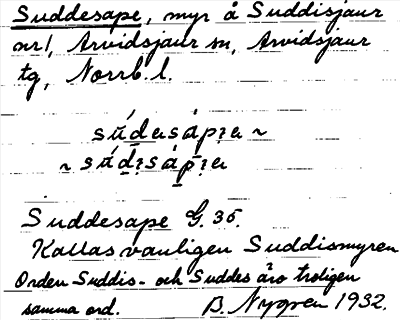 Suddesape, myr å Suddisjaur
nr1, Arvidsjaur sn, Arvidsjaur
tg, Norrb. l.
Suddesape G. 36.
Kallas vanligen Suddismyren
Orden Suddis- och Suddes äro troligen
samma ord. B. Nygren 1932.